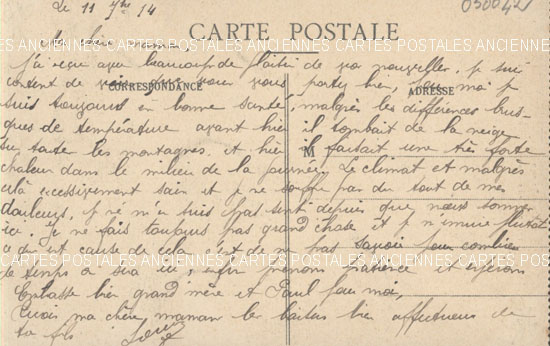 Le 11 7bre 14
030042
CARTE POSTALE
J'ai reçu avec beaucoup de plaisir de vos nouvelles, je suis
content de voir que vous vous portez bien, moi je
CORRESPONDANCE
ADRESSE
suis toujours en bonne santé, malgré les différences brus-
ques de température avant hier il tombait de la neige
M
sur toutes les montagnes, et hier il faisait une très forte
chaleur dans le milieu de la journée. Le climat et malgrès
celà excessivement sain et je ne souffre pas du tout de mes
douleurs, je ne m'en suis pas senti depuis que nous sommes
ici. Je ne fais toujours pas grand chose et je m'ennuie plutôt
ce qui est cause de cela c'est de ne pas savoir pour combien
de temps on sera ici, enfin prenons patience et espérons
Embrasse bien grand'mère et Paul pour moi,
Reçois ma chère maman les baisers bien affectueux de
ton fils
CARTES POSTALES ANCIENNES